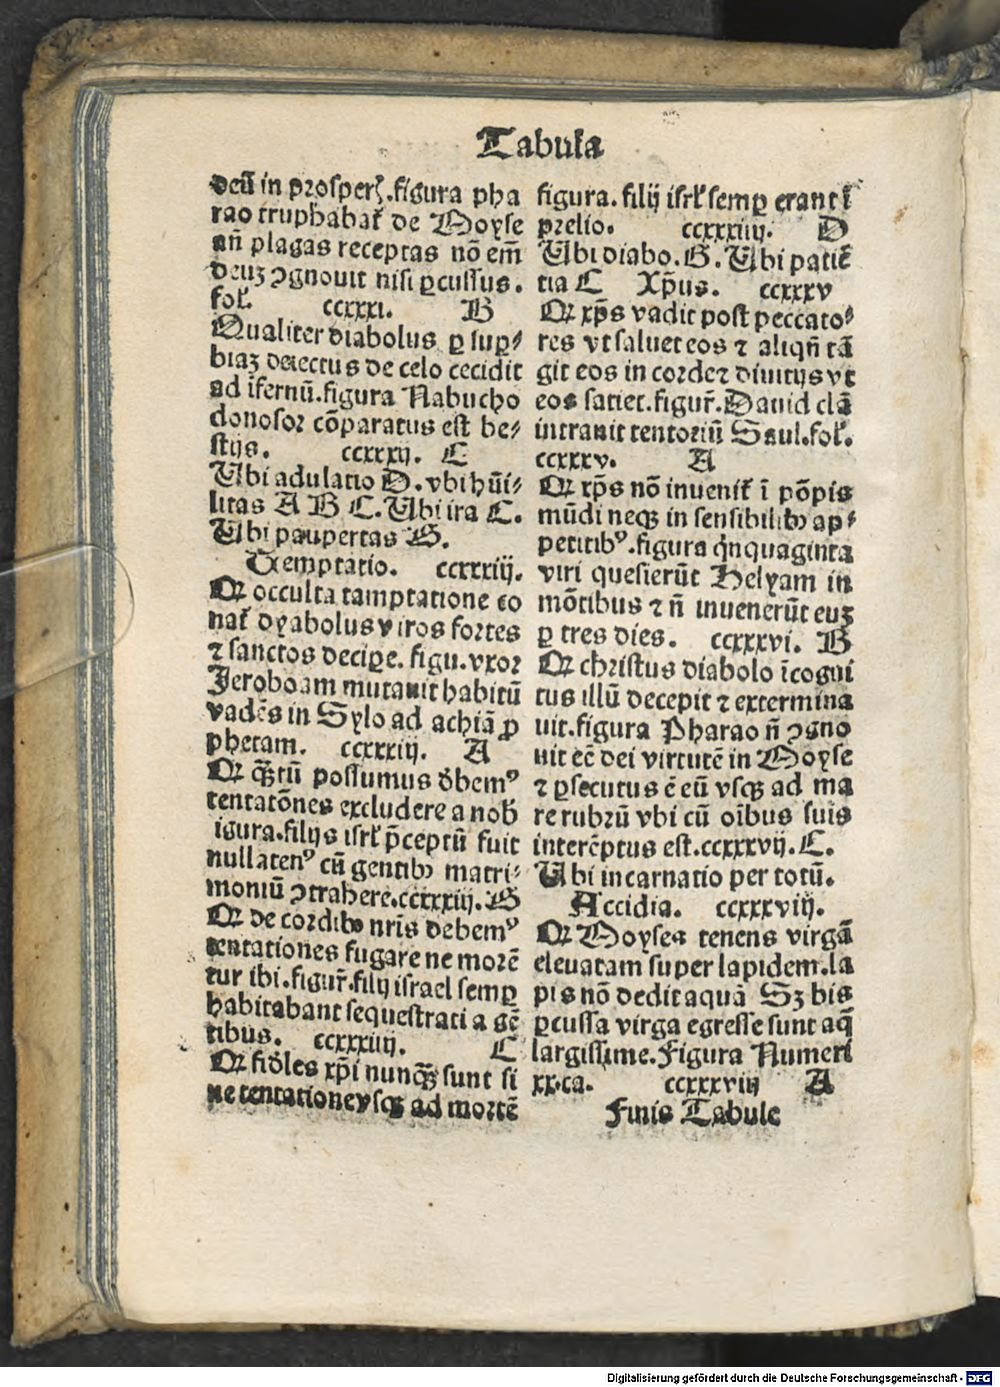 Tabula
deū in prosperꝫ. figura pha
rao truphabat̃ de Moyse
añ plagas receptas nō em̄
deuꝫ ꝯgnouit nisi ꝑcussus.
fol. ccxxxi. B
Qualiter diabolus ꝑ suꝑ-
biaꝫ deiectus de celo cecidit
ad ifernū. figura Nabucho
donosor cōparatus est be-
stijs. ccxxxij. C
Ubi adulatio D. vbi hūi-
litas A B C. Ubi ira C.
Ubi paupertas G.
Temptatio. ccxxxiij.
Qꝛ occulta tamptatione co
nat̃ dyabolus viros fortes
⁊ sanctos deciꝑe. figu. vxor
Jeroboam mutauit habitū
vadēs in Sylo ad achiā ꝓ
phetam. ccxxxiij. A
Qꝛ qᷓꝫtū possumus dēbemꝰ
tentatōnes excludere a nob̃
igura. filijs isrl̃ p̄ceptū fuit
nullatenꝰ cū gentibꝫ matri-
moniū ꝯtrahere. ccxxxiij. G
Qꝛ de cordibꝫ nr̃is debemꝰ
tentationes fugare ne morē
tur ibi. figur̃. filij israel semꝑ
habitabant sequestrati a gē
tibus. ccxxxiiij. C
Qꝛ fidles xp̄i nunqᷓꝫ sunt si
ne tentatione vsqꝫ ad mortē
figura. filij isrl̃ semꝑ erant ī
prelio. ccxxxiiij. D
Ubi diabo. G. Ubi patiē
tia C Xp̄us. ccxxxv
Qꝛ xp̄s vadit post peccato-
res vt saluet eos ⁊ aliqñ tā
git eos in corde ⁊ diuitijs vt
eos satiet. figur̃. Dauid clā
intrauit tentoriū Saul. fol.
ccxxxv. A
Qꝛ xp̄s nō inuenit̃ ī pōpis
mūdi neqꝫ in sensibilibꝫ ap-
petitibꝰ. figura qͥnquaginta
viri quesierūt Helyam in
mōtibus ⁊ ñ inuenerūt euꝫ
ꝑ tres dies. ccxxxvi. B
Qꝛ christus diabolo īcogni
tus illū decepit ⁊ extermina
uit. figura Pharao ñ ꝯgno
uit eē dei virtutē in Moyse
⁊ ꝑsecutus ē eū vsqꝫ ad ma
re rubrū vbi cū oībus suis
interēptus est. ccxxxvij. C.
Ubi incarnatio per totū.
Accidia. ccxxxviij.
Qꝛ Moyses tenens virgā
eleuatam super lapidem. la
pis nō dedit aquā Sꝫ bis
ꝑcussa virga egresse sunt aq̄
largissime. Figura Numeri
xx. ca. ccxxxviij A
Finis Tabule
Digitalisierung gefördert durch die Deutsche Forschungsgemeinschaft - DFG